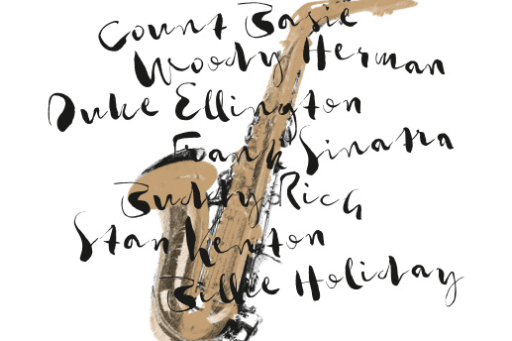 Count Basie
Woody Herman
Duke Ellington
Frank Sinatra
Buddy Rich
Stan Kenton
Billie Holiday